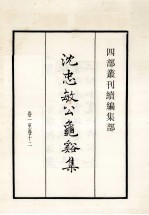 四部叢刊續編集部
沈忠敏公龜谿集
卷一至卷十二